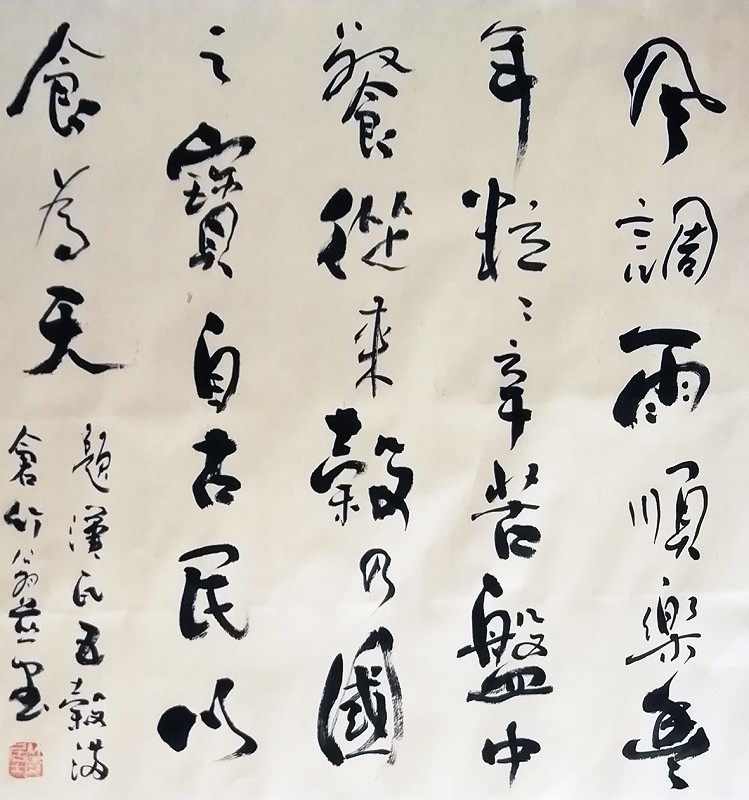 風調雨順樂豐
年粒々辛苦盤中
餐從來穀乃國
之寶自古民以
食為天
題漢瓦五穀滿
倉竹翁